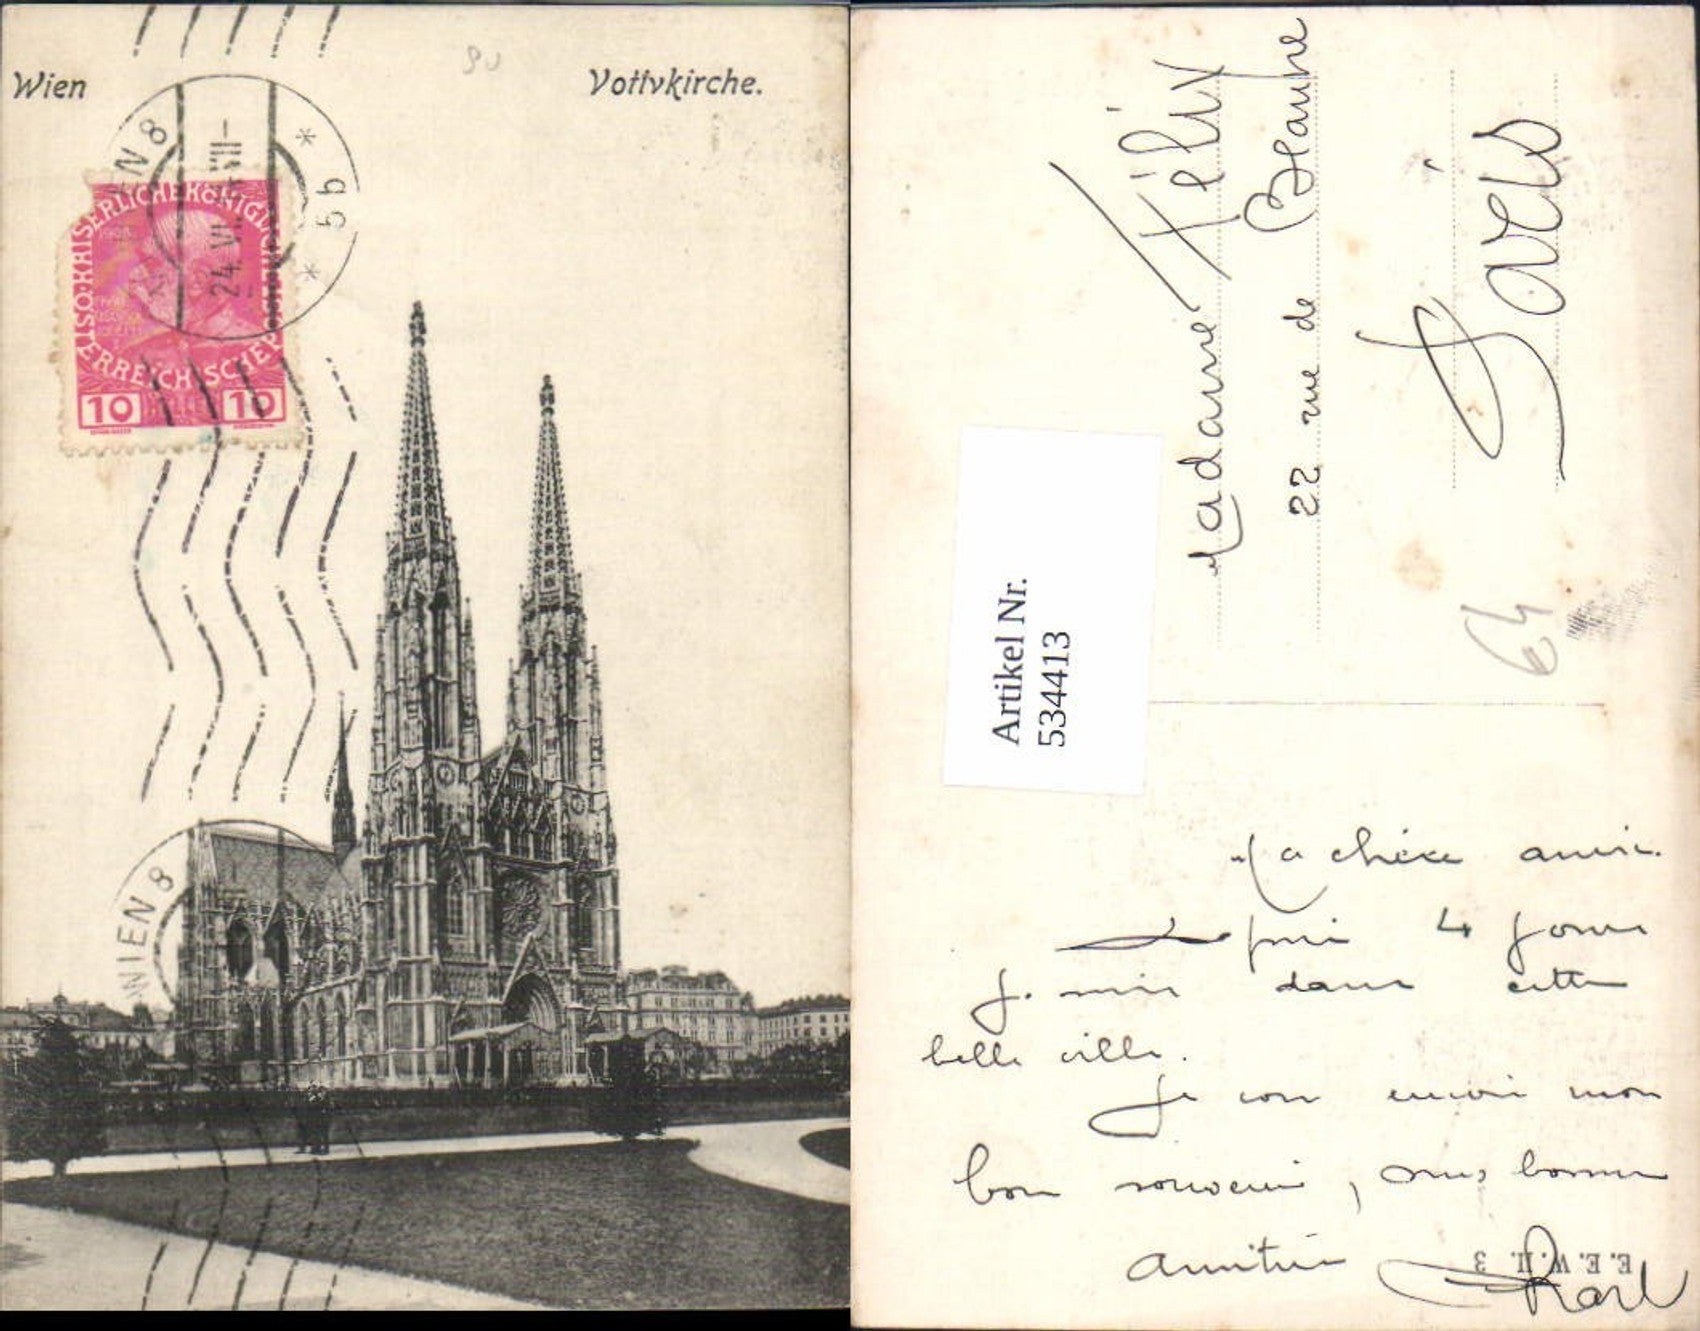 Wien
Votivkirche.
WIEN 8
24. VI.
* 5b *
KAISERLICHE KÖNIGLICHE
ÖSTERREICHISCHE
10 HELLER 10
WIEN 8
Madame Félix
22 rue de
Paris
64
Artikel Nr.
534413
Ma chère amie.
Depuis 4 jours
je suis dans cette
belle ville.
Je vous envoie mon
bon souvenir, mes bonnes
amitiés
Karl
E. E. W. II. 3